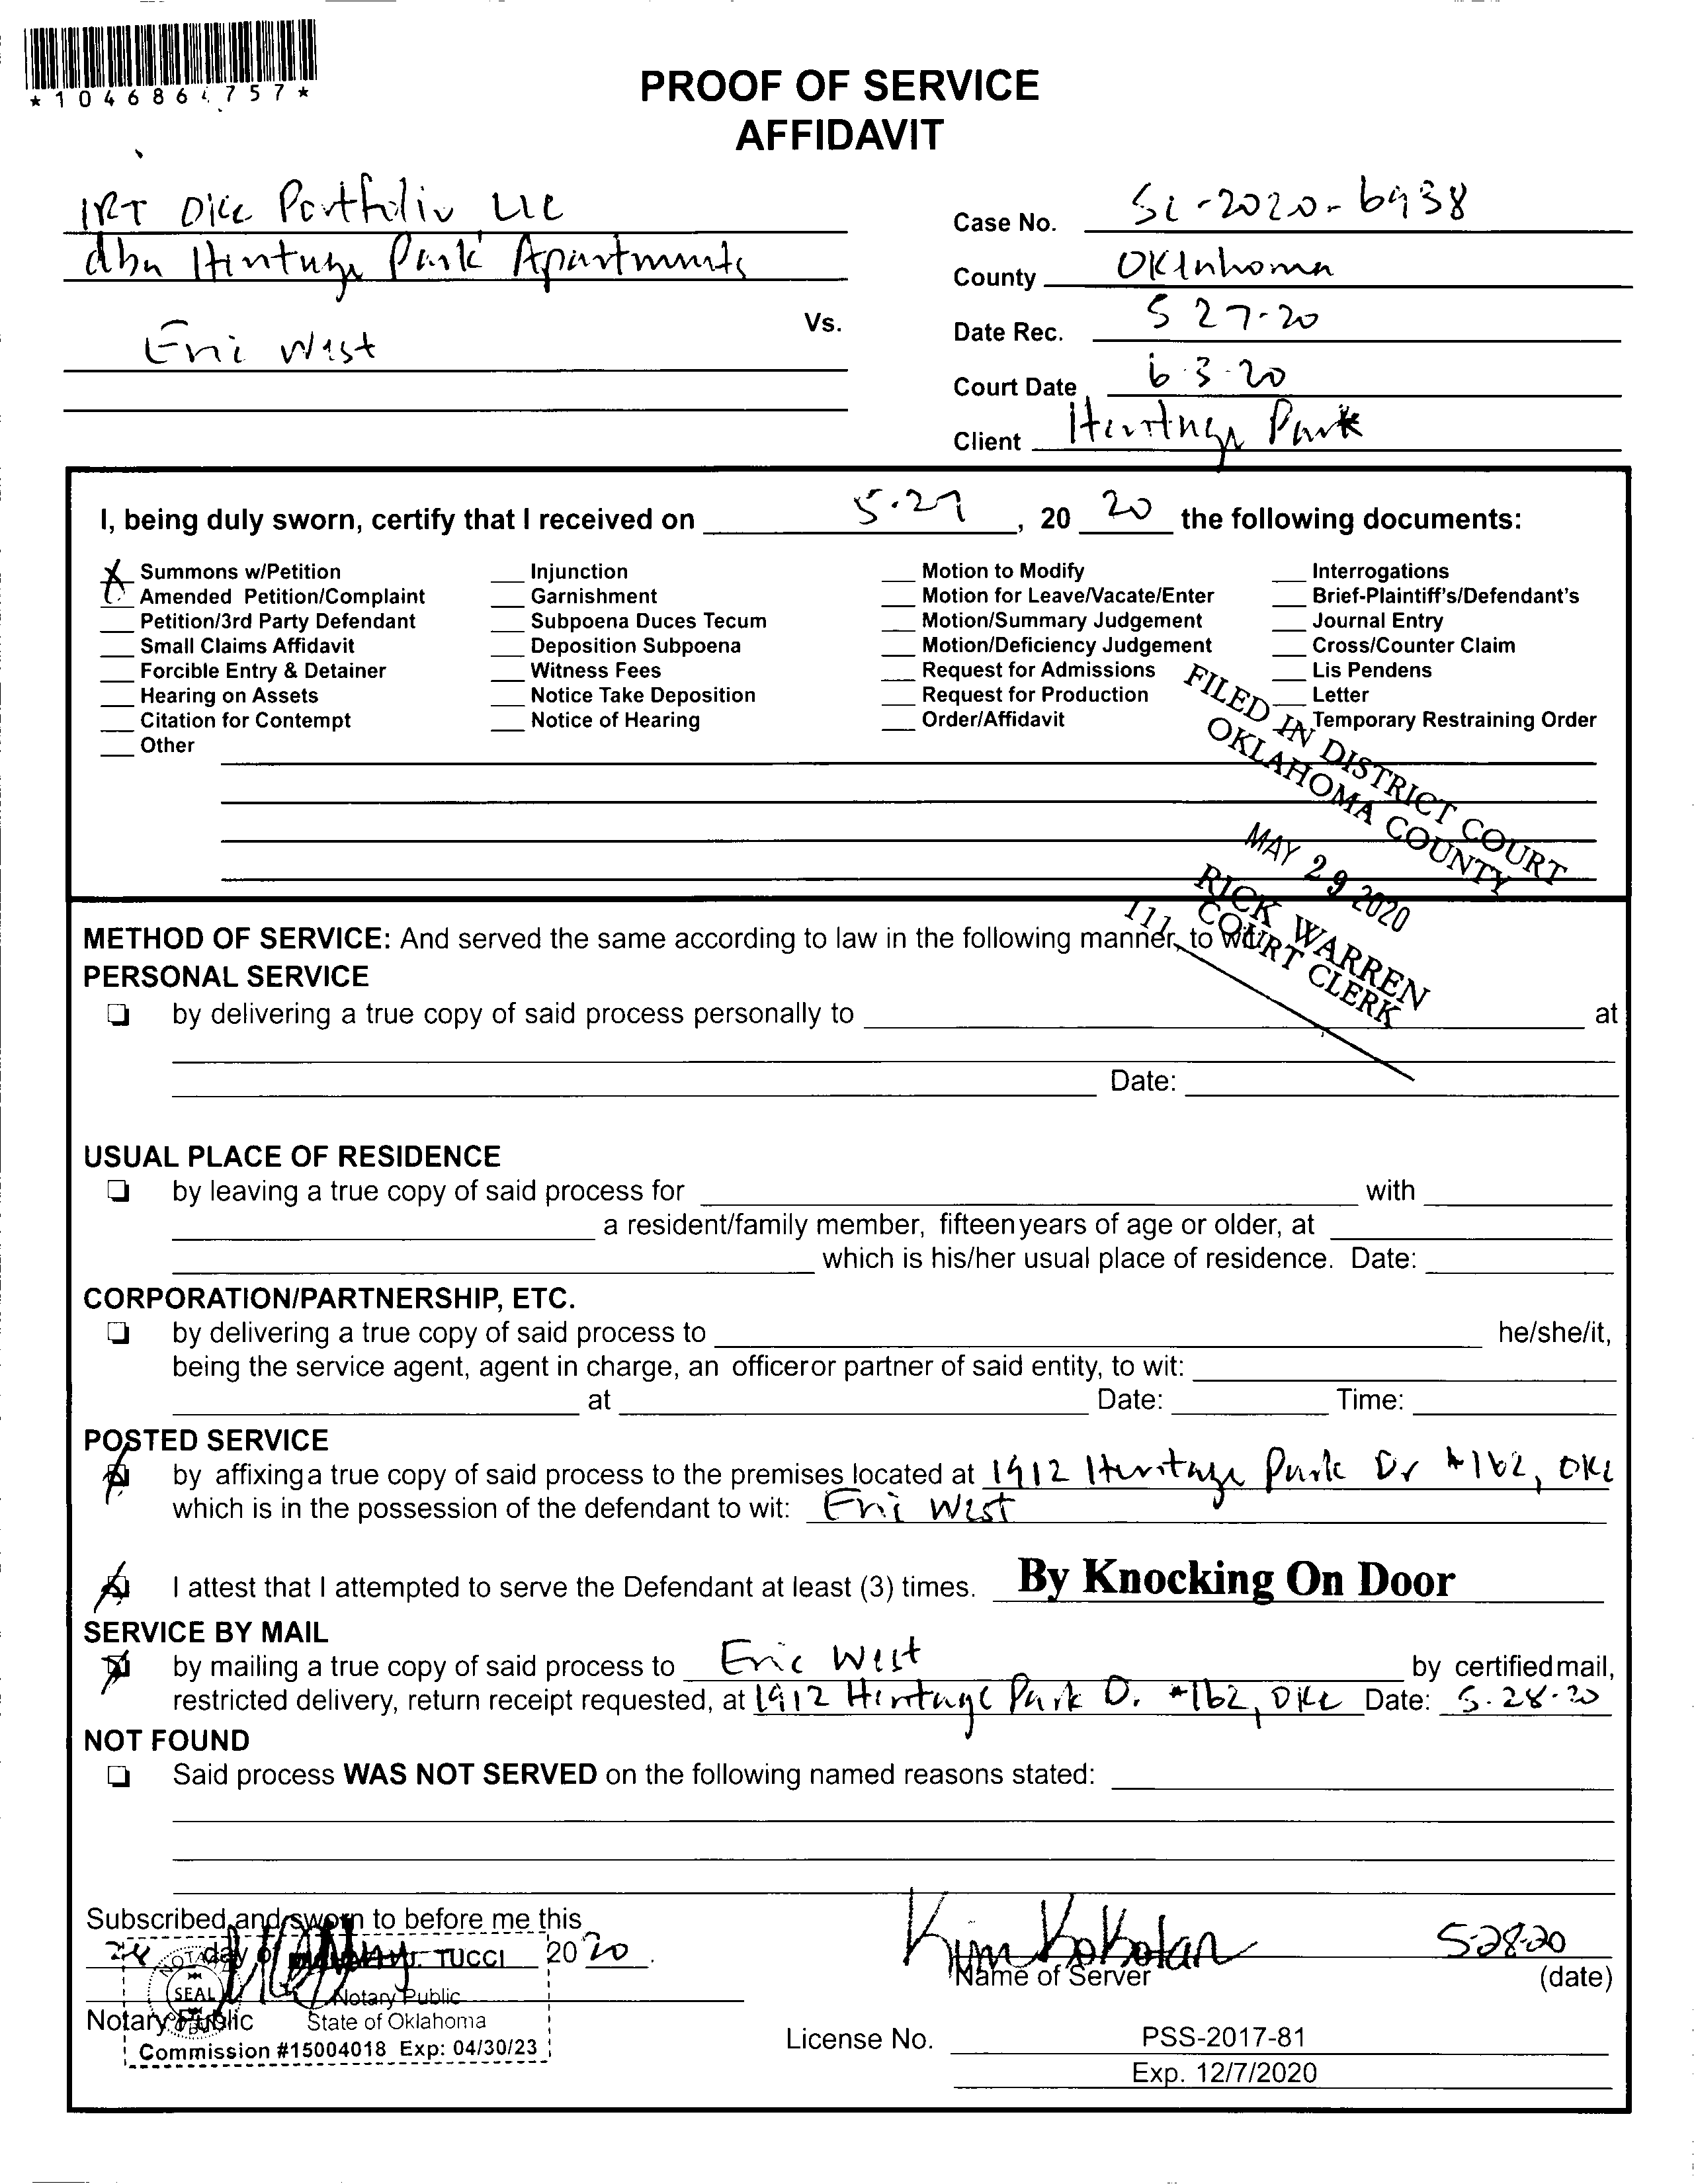 *1046864757*
PROOF OF SERVICE
AFFIDAVIT
IRT OKC Portfolio LLC
dba Heritage Park Apartments
Vs.
Eric West
Case No. SC-2020-6938
County Oklahoma
Date Rec. 5 27-20
Court Date 6-3-20
Client Heritage Park
I, being duly sworn, certify that I received on 5-27, 20 20 the following documents:
X Summons w/Petition
Amended Petition/Complaint
Petition/3rd Party Defendant
Small Claims Affidavit
Forcible Entry & Detainer
Hearing on Assets
Citation for Contempt
Other
Injunction
Garnishment
Subpoena Duces Tecum
Deposition Subpoena
Witness Fees
Notice Take Deposition
Notice of Hearing
Motion to Modify
Motion for Leave/Vacate/Enter
Motion/Summary Judgement
Motion/Deficiency Judgement
Request for Admissions
Request for Production
Order/Affidavit
Interrogations
Brief-Plaintiff's/Defendant's
Journal Entry
Cross/Counter Claim
Lis Pendens
Letter
Temporary Restraining Order
FILED IN DISTRICT COURT
OKLAHOMA COUNTY
MAY 29 2020
RICK WARREN
COURT CLERK
111
METHOD OF SERVICE: And served the same according to law in the following manner, to wit:
PERSONAL SERVICE
by delivering a true copy of said process personally to at
Date:
USUAL PLACE OF RESIDENCE
by leaving a true copy of said process for with
a resident/family member, fifteen years of age or older, at
which is his/her usual place of residence. Date:
CORPORATION/PARTNERSHIP, ETC.
by delivering a true copy of said process to he/she/it,
being the service agent, agent in charge, an officer or partner of said entity, to wit:
at Date: Time:
POSTED SERVICE
by affixing a true copy of said process to the premises located at 1912 Heritage Park Dr #162, OKC
which is in the possession of the defendant to wit: Eric West
I attest that I attempted to serve the Defendant at least (3) times. By Knocking On Door
SERVICE BY MAIL
by mailing a true copy of said process to Eric West by certified mail,
restricted delivery, return receipt requested, at 1912 Heritage Park D. #162, OKC Date: 5-28-20
NOT FOUND
Said process WAS NOT SERVED on the following named reasons stated:
Subscribed and sworn to before me this
28 day of 20 20.
TUCCI
SEAL
Notary Public
State of Oklahoma
Notary Public
Commission #15004018 Exp: 04/30/23
Kim Kokotan 5-28-20
Name of Server (date)
License No. PSS-2017-81
Exp. 12/7/2020